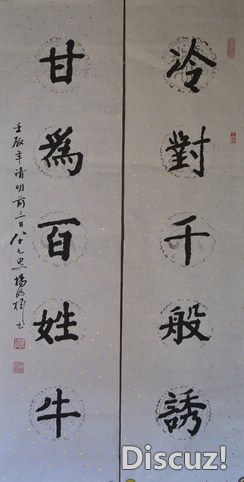 冷對千般誘
甘為百姓牛
壬辰年清明前三日
Discuz!